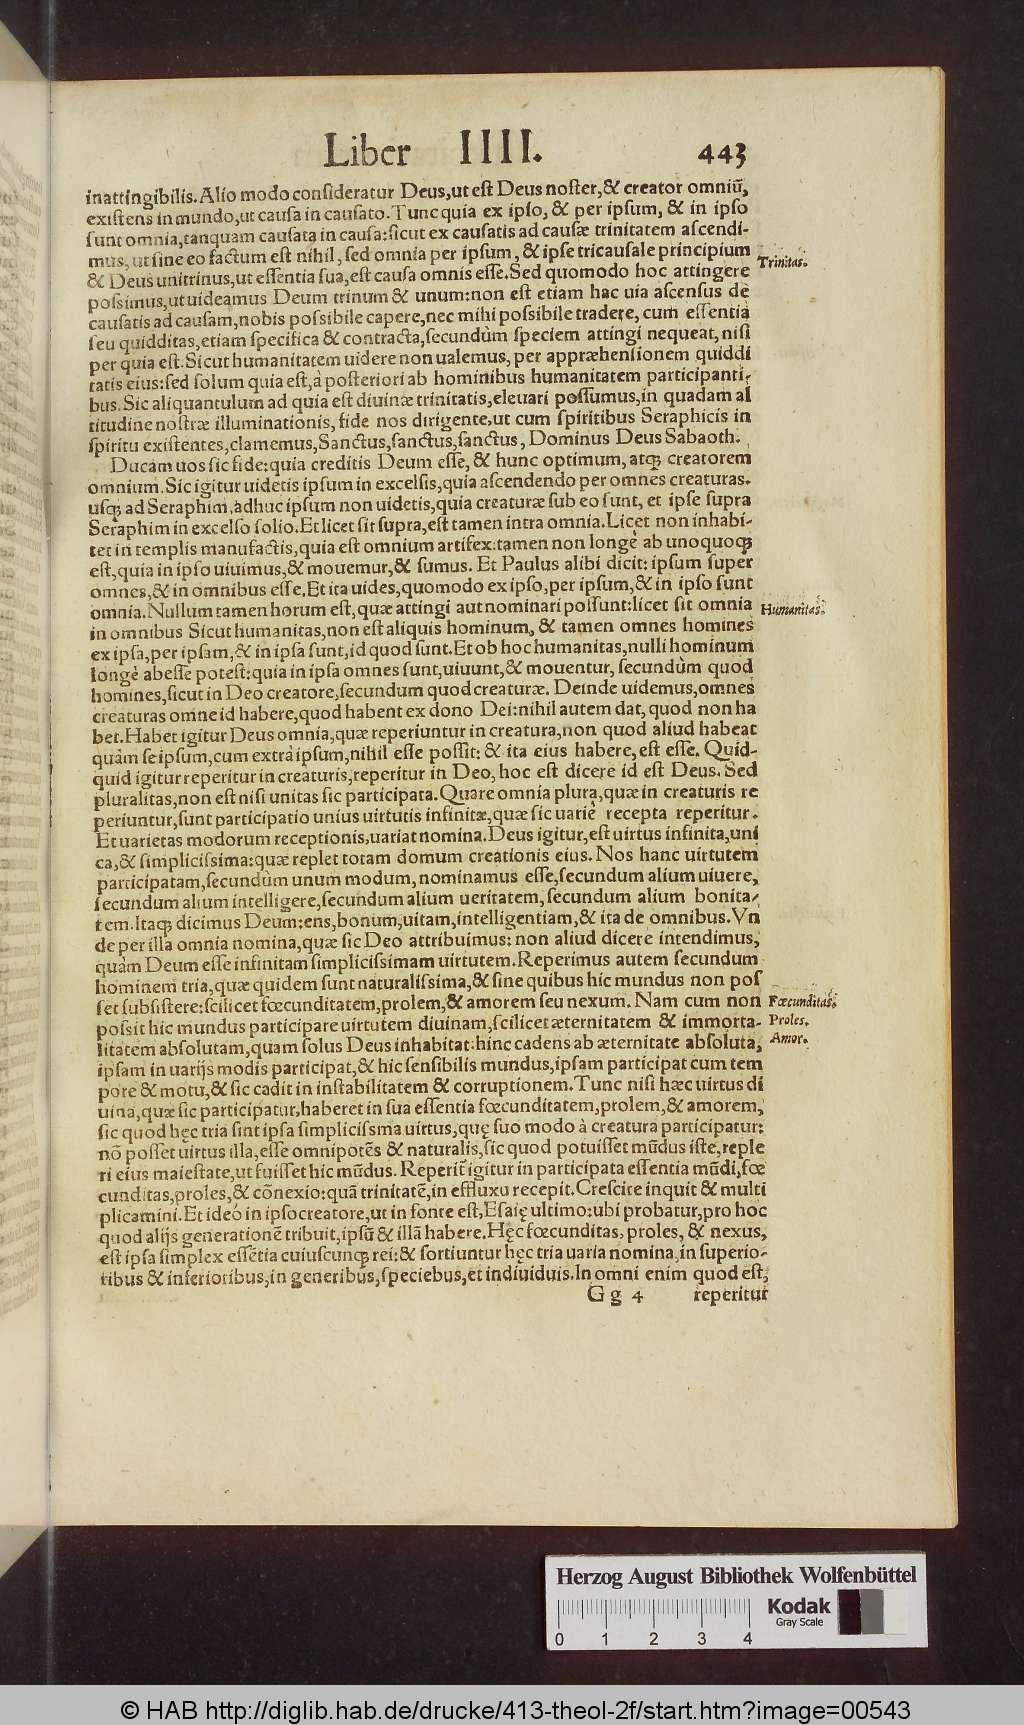 Liber IIII. 443
inattingibilis. Alio modo consideratur Deus, ut est Deus noster, & creator omniũ,
existens in mundo, ut causa in causato. Tunc quia ex ipso, & per ipsum, & in ipso
sunt omnia, tanquam causata in causa: sicut ex causatis ad causæ trinitatem ascendi-
mus, ut sine eo factum est nihil, sed omnia per ipsum, & ipse tricausale principium
Trinitas.
& Deus unitrinus, ut essentia sua, est causa omnis esse. Sed quomodo hoc attingere
possimus, ut uideamus Deum trinum & unum: non est etiam hac uia ascensus de
causatis ad causam, nobis possibile capere, nec mihi possibile tradere, cum essentia
seu quidditas, etiam specifica & contracta, secundùm speciem attingi nequeat, nisi
per quia est. Sicut humanitatem uidere non ualemus, per appræhensionem quiddi
tatis eius: sed solum quia est, à posteriori ab hominibus humanitatem participanti-
bus. Sic aliquantulum ad quia est diuinæ trinitatis, eleuari possumus, in quadam al
titudine nostræ illuminationis, fide nos dirigente, ut cum spiritibus Seraphicis in
spiritu existentes, clamemus, Sanctus, sanctus, sanctus, Dominus Deus Sabaoth.
Ducam uos sic fide: quia creditis Deum esse, & hunc optimum, atq; creatorem
omnium. Sic igitur uidetis ipsum in excelsis, quia ascendendo per omnes creaturas.
usq; ad Seraphim, adhuc ipsum non uidetis, quia creaturæ sub eo sunt, et ipse supra
Seraphim in excelso solio. Et licet sit supra, est tamen intra omnia. Licet non inhabi-
tet in templis manufactis, quia est omnium artifex: tamen non longè ab unoquoq;
est, quia in ipso uiuimus, & mouemur, & sumus. Et Paulus alibi dicit: ipsum super
omnes, & in omnibus esse. Et ita uides, quomodo ex ipso, per ipsum, & in ipso sunt
omnia. Nullum tamen horum est, quæ attingi aut nominari possunt: licet sit omnia
Humanitas.
in omnibus Sicut humanitas, non est aliquis hominum, & tamen omnes homines
ex ipsa, per ipsam, & in ipsa sunt, id quod sunt. Et ob hoc humanitas, nulli hominum
longè abesse potest: quia in ipsa omnes sunt, uiuunt, & mouentur, secundùm quod
homines, sicut in Deo creatore, secundum quod creaturæ. Deinde uidemus, omnes
creaturas omne id habere, quod habent ex dono Dei: nihil autem dat, quod non ha
bet. Habet igitur Deus omnia, quæ reperiuntur in creatura, non quod aliud habeat
quàm seipsum, cum extra ipsum, nihil esse possit: & ita eius habere, est esse. Quid-
quid igitur reperitur in creaturis, reperitur in Deo, hoc est dicere id est Deus. Sed
pluralitas, non est nisi unitas sic participata. Quare omnia plura, quæ in creaturis re
periuntur, sunt participatio unius uirtutis infinitæ, quæ sic uariè recepta reperitur.
Et uarietas modorum receptionis, uariat nomina. Deus igitur, est uirtus infinita, uni
ca, & simplicissima: quæ replet totam domum creationis eius. Nos hanc uirtutem
participatam, secundùm unum modum, nominamus esse, secundum alium uiuere,
secundum alium intelligere, secundum alium ueritatem, secundum alium bonita-
tem. Itaq; dicimus Deum: ens, bonum, uitam, intelligentiam, & ita de omnibus. Vn
de per illa omnia nomina, quæ sic Deo attribuimus: non aliud dicere intendimus,
quàm Deum esse infinitam simplicissimam uirtutem. Reperimus autem secundum
hominem tria, quæ quidem sunt naturalissima, & sine quibus hic mundus non pos
set subsistere: scilicet fœcunditatem, prolem, & amorem seu nexum. Nam cum non
Fœcunditas.
possit hic mundus participare uirtutem diuinam, scilicet æternitatem & immorta-
Proles.
litatem absolutam, quam solus Deus inhabitat: hinc cadens ab æternitate absoluta,
Amor.
ipsam in uarijs modis participat, & hic sensibilis mundus, ipsam participat cum tem
pore & motu, & sic cadit in instabilitatem & corruptionem. Tunc nisi hæc uirtus di
uina, quæ sic participatur, haberet in sua essentia fœcunditatem, prolem, & amorem,
sic quod hęc tria sint ipsa simplicissma uirtus, quę suo modo à creatura participatur:
nõ posset uirtus illa, esse omnipotẽs & naturalis, sic quod potuisset mũdus iste, reple
ri eius maiestate, ut fuisset hic mũdus. Reperit͂ igitur in participata essentia mũdi, fœ
cunditas, proles, & cõnexio: quã trinitatẽ, in effluxu recepit. Crescite inquit & multi
plicamini. Et ideo in ipso creatore, ut in fonte est, Esaię ultimo: ubi probatur, pro hoc
quod alijs generationẽ tribuit, ipsũ & illã habere. Hęc fœcunditas, proles, & nexus,
est ipsa simplex essẽtia cuiuscunq; rei: & sortiuntur hęc tria uaria nomina, in superio-
ribus & inferioribus, in generibus, speciebus, et indiuiduis. In omni enim quod est,
Gg 4 reperitur
Herzog August Bibliothek Wolfenbüttel
Kodak
Gray Scale
0 1 2 3 4
© HAB http://diglib.hab.de/drucke/413-theol-2f/start.htm?image=00543